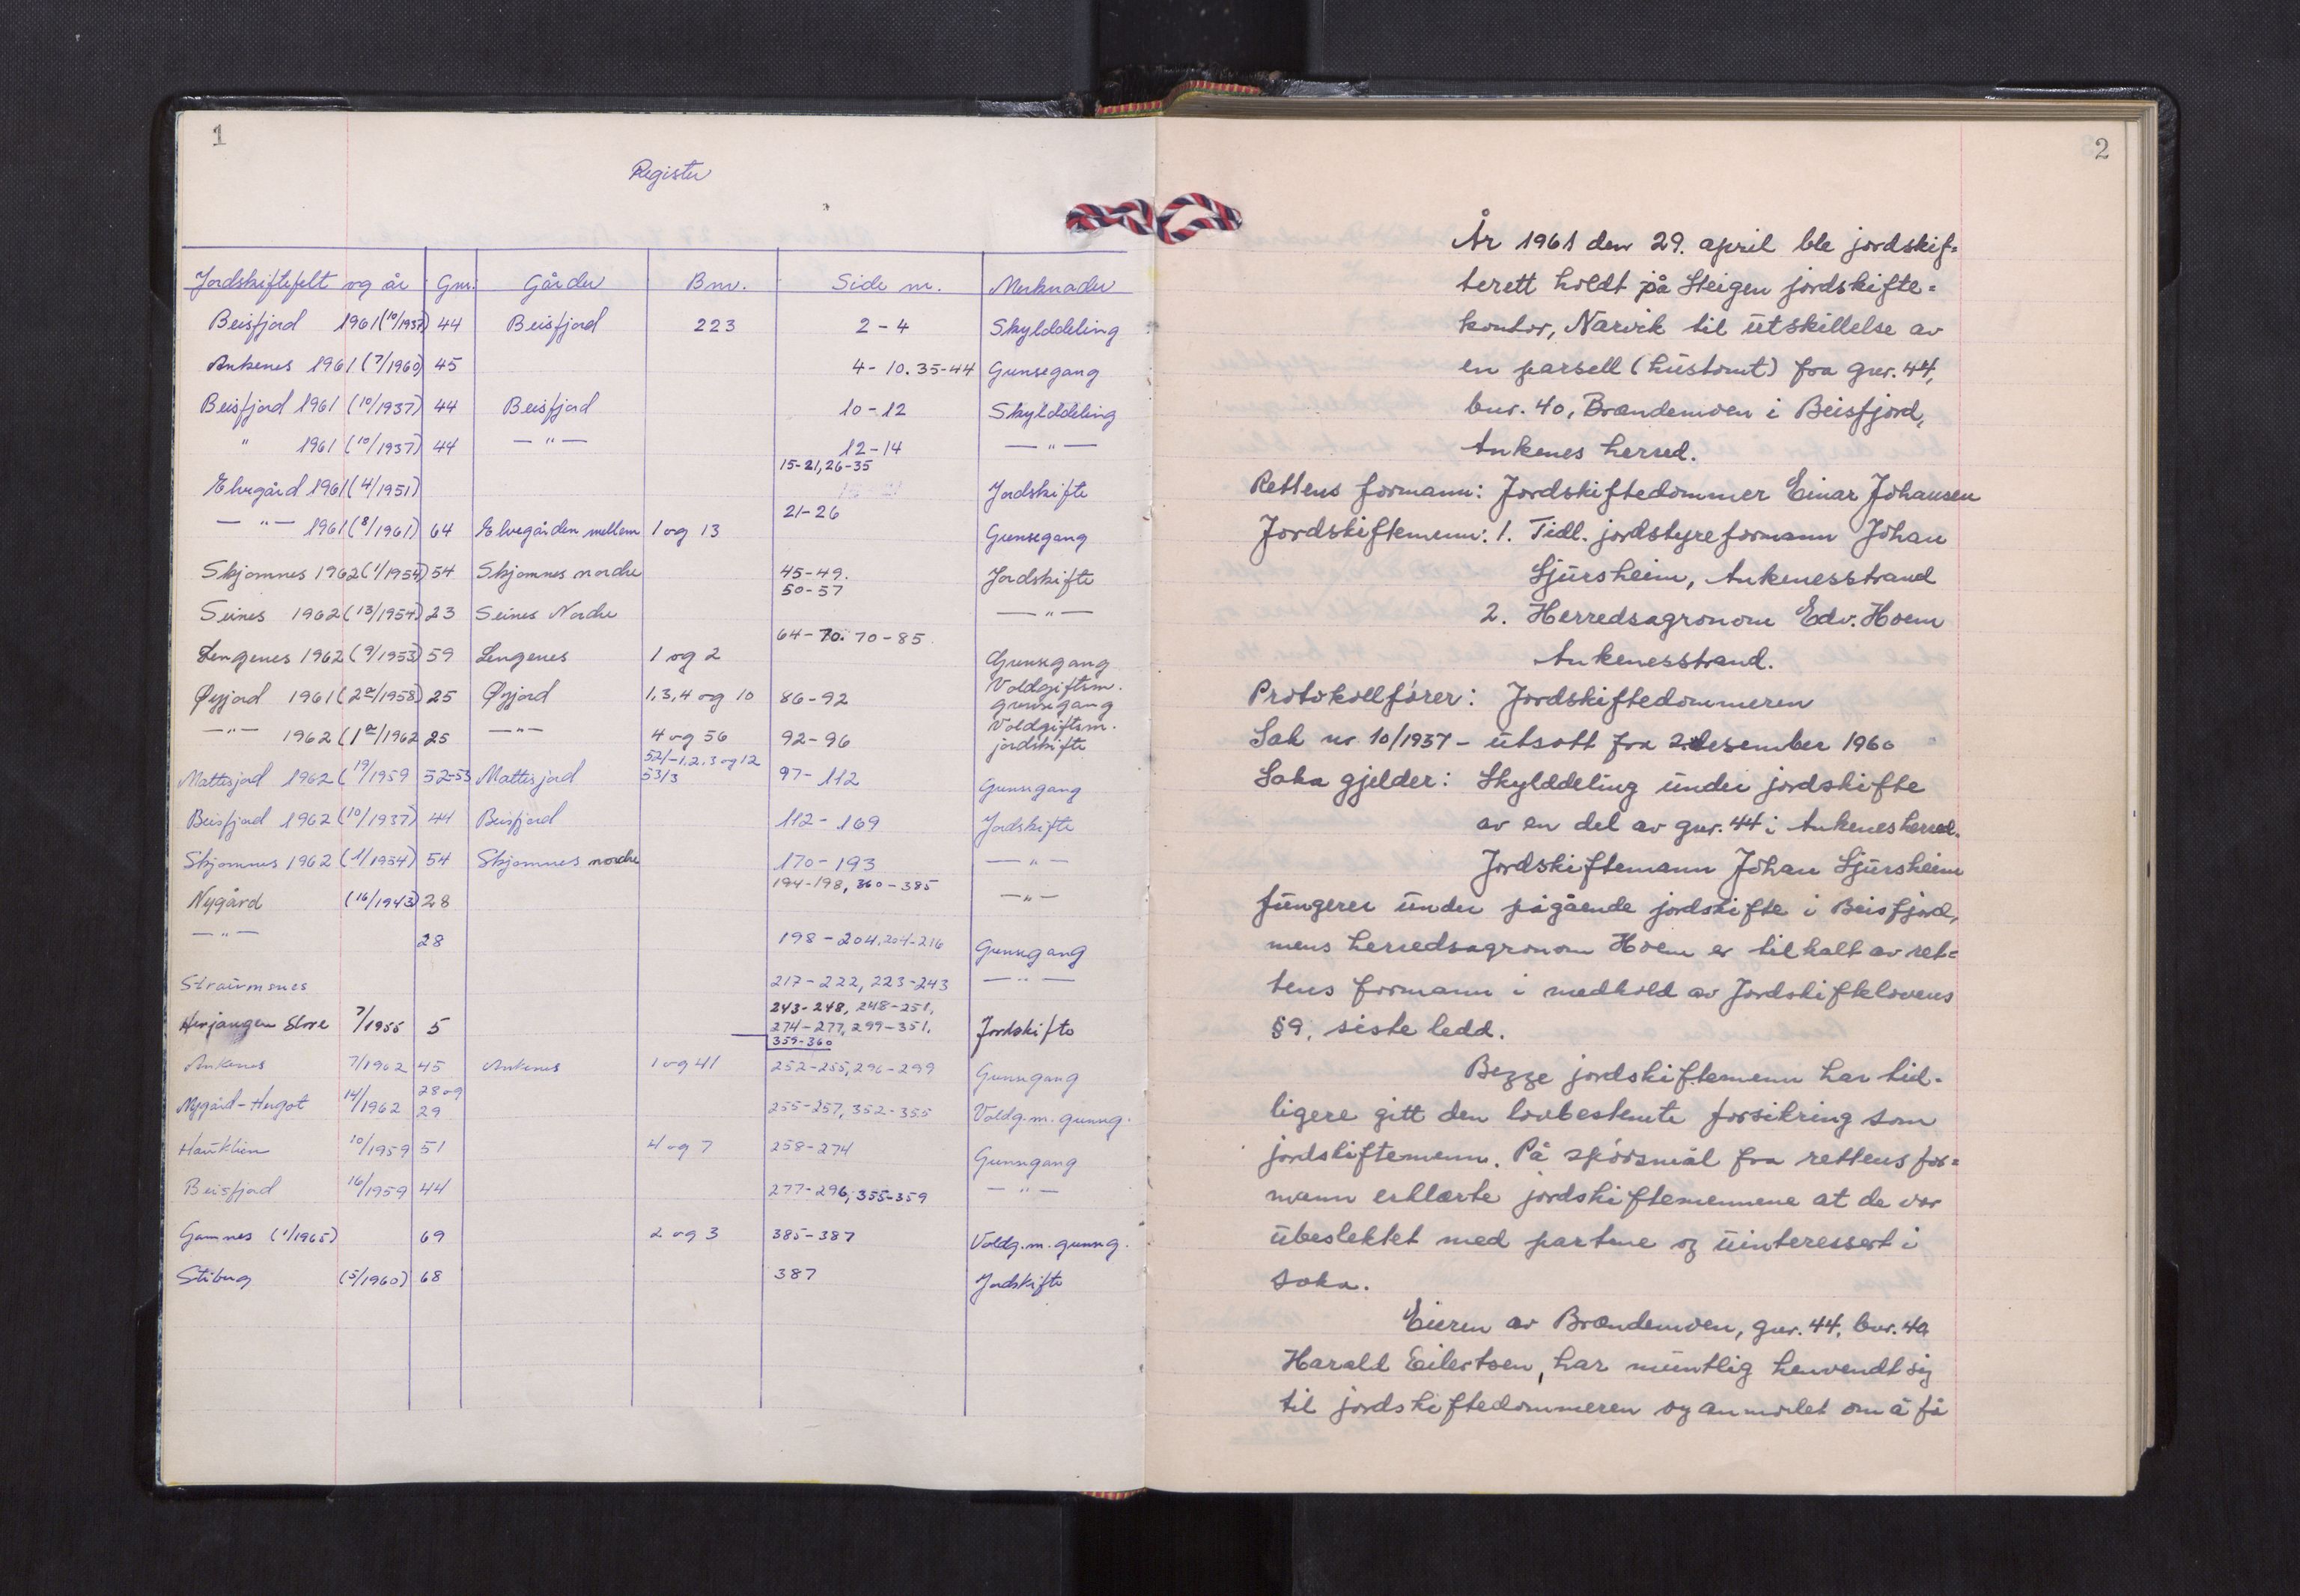 1
Register
Jordskiftefelt og år Gnr. Gårder Bnr. Side nr. Merknader
Beisfjord 1961 (10/1937) 44 Beisfjord 223 2-4 Skylddeling
Ankenes 1961 (7/1960) 45 4-10. 35-44 Grensegang
Beisfjord 1961 (10/1937) 44 Beisfjord 10-12 Skylddeling
" 1961 (10/1937) 44 — " — 12-14 — " —
Elvegård 1961 (4/1951) 15-21, 26-35 Jordskifte
— " — 1961 (8/1961) 64 Elvegården mellem 1 og 13 21-26 Grensegang
Skjomnes 1962 (1/1954) 54 Skjomnes nordre 45-49. Jordskifte
50-57
Seines 1962 (13/1954) 23 Seines Nordre — " —
Lengenes 1962 (9/1953) 59 Lengenes 1 og 2 64-70. 70-85 Grensegang
Øyjord 1961 (2a/1958) 25 Øyjord 1, 3, 4 og 10 86-92 Voldgiftsm.
grensegang
— " — 1962 (1a/1962 25 — " — 4 og 56 92-96 Voldgiftsm.
jordskifte
Mattisjord 1962 (19/1959 52-53 Mattisjord 52/-1, 2, 3 og 12
53/3 97-112 Grensegang
Beisfjord 1962 (10/1937) 44 Beisfjord 112-169 Jordskifte
Skjomnes 1962 (1/1954) 54 Skjomnes nordre 170-193 — " —
Nygård (16/1943) 28 194-198, 360-385 — " —
— " — 28 198-204, 204-216 Grensegang
Straumsnes 217-222, 223-243 — " —
Herjangen Store 7/1955 5 243-248, 248-251,
274-277, 299-351, Jordskifte
359-360
Ankenes 7/1962 45 Ankenes 1 og 41 252-255, 296-299 Grensegang
Nygård-Hergot 14/1962 28 og
29 255-257, 352-355 Voldg.m. grenseg.
Hauklien 10/1959 51 4 og 7 258-274 Grensegang
Beisfjord 16/1959 44 277-296, 355-359 — " —
Gamnes (1/1965) 69 2 og 3 385-387 Voldg.m. grenseg.
Stiberg (5/1960) 68 387 Jordskifte
2
År 1961 den 29. april ble jordskif=
terett holdt på Steigen jordskifte=
kontor, Narvik til utskillelse av
en parsell (hustomt) fra gnr. 44,
bnr. 40, Brandemoen i Beisfjord,
Ankenes herred.
Rettens formann: Jordskiftedommer Einar Johansen
Jordskiftemenn: 1. Tidl. jordstyreformann Johan
Sjursheim, Ankenesstrand
2. Herredsagronom Edv. Hoem
Ankenesstrand.
Protokollfører: Jordskiftedommeren
Sak nr 10/1937 - utsatt fra 2. desember 1960
Saka gjelder: Skylddeling under jordskifte
av en del av gnr. 44 i Ankenes herred.
Jordskiftemann Johan Sjursheim
fungerer under pågående jordskifte i Beisfjord,
mens herredsagronom Hoem er tilkalt av ret=
tens formann i medhold av Jordskiftelovens
§ 9, siste ledd.
Begge jordskiftemenn har tid-
ligere gitt den lovbestemte forsikring som
jordskiftemenn. På spørsmål fra rettens for=
mann erklærte jordskiftemennene at de var
ubeslektet med partene og uinteressert i
saka.
Eieren av Brandemoen, gnr. 44, bnr. 40
Harald Eilertsen, har muntlig henvendt sig
til jordskiftedommeren og anmodet om å få